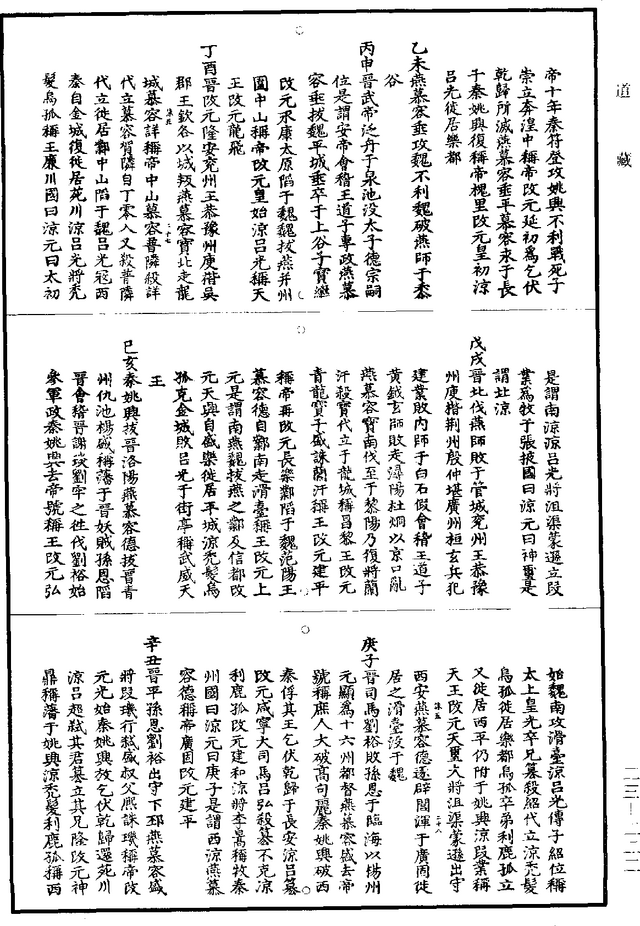 道藏
帝十年秦符登攻姚興不利戰死子
崇立奔湟中稱帝改元延初爲乞伏
乾歸所滅燕慕容垂平慕容永于長
子秦姚興復稱帝槐里改元皇初涼
呂光徙居樂都
乙未燕慕容垂攻魏不利魏破燕師于黍
谷
丙申晉武帝泛舟于泉池沒太子德宗嗣
位是謂安帝會稽王道子專政燕慕
容垂拔魏平城垂卒于上谷子寶繼
改元永康太原陷于魏魏拔燕并州
圍中山稱帝改元皇始涼呂光稱天
王改元龍飛
丁酉晉改元隆安兖州王恭豫州庾楷吳
郡王欽各以城叛燕慕容寶北走龍
城慕容詳稱帝中山慕容普隣殺詳
代立慕容賀隣自丁零入又殺普隣
代立徙居鄴中山陷于魏呂光寇西
秦自金城復徙居苑川涼呂光將秃
髮烏孤稱王廉川國曰涼元曰太初
是謂南涼涼呂光將沮渠蒙遜立段
業爲牧于張掖國曰涼元曰神璽是
謂北涼
戊戌晉北伐燕師敗于管城兖州王恭豫
州庾楷荆州殷仲堪廣州桓玄兵犯
建業敗内師于白石假會稽王道子
黄鉞玄師敗走潯陽杜炯以京口亂
燕慕容寶南伐至于黎陽乃復將蘭
汗殺寶代立于龍城稱昌黎王改元
青龍寶子盛誅蘭汗稱王改元建平
稱帝再改元長樂鄴陷于魏范陽王
慕容德自鄴南走滑臺稱王改元上
元是謂南燕魏拔燕之鄴及信都改
元天興自盛樂徙居平城涼秃髮烏
孤克金城敗呂光于街亭稱武威天
王
己亥秦姚興拔晉洛陽燕慕容德拔晉青
州仇池楊盛稱藩于晉妖賊孫恩陷
晉會稽晉謝琰劉牢之往伐劉裕始
參軍政秦姚興去帝號稱王改元弘
始魏南攻滑臺涼呂光傳子紹位稱
太上皇光卒兄纂殺紹代立涼秃髮
烏孤徙居樂都烏孤卒弟利鹿孤立
又徙居西平仍附于姚興涼段業稱
天王改元天璽大將沮渠蒙遜出守
西安燕慕容德遂辟閭渾于廣固徙
居之滑臺沒于魏
庚子晉司馬劉裕敗孫恩于臨海以揚州
元顯爲十六州都督燕慕容盛去帝
號稱庶人大破高句麗秦姚興破西
秦俘其王乞伏乾歸于長安涼呂纂
改元咸寧大司馬呂弘殺纂不克涼
利鹿孤改元建和涼將李暠稱牧秦
州國曰涼元曰庚子是謂西涼燕慕
容德稱帝廣固改元建平
辛丑晉平孫恩劉裕出守下邳燕慕容盛
將段璣行弑盛叔父熙誅璣稱帝改
元光始秦姚興放乞伏乾歸還苑川
涼呂超弑其君纂立其兄隆改元神
鼎稱藩于姚興涼秃髮利鹿孤稱西